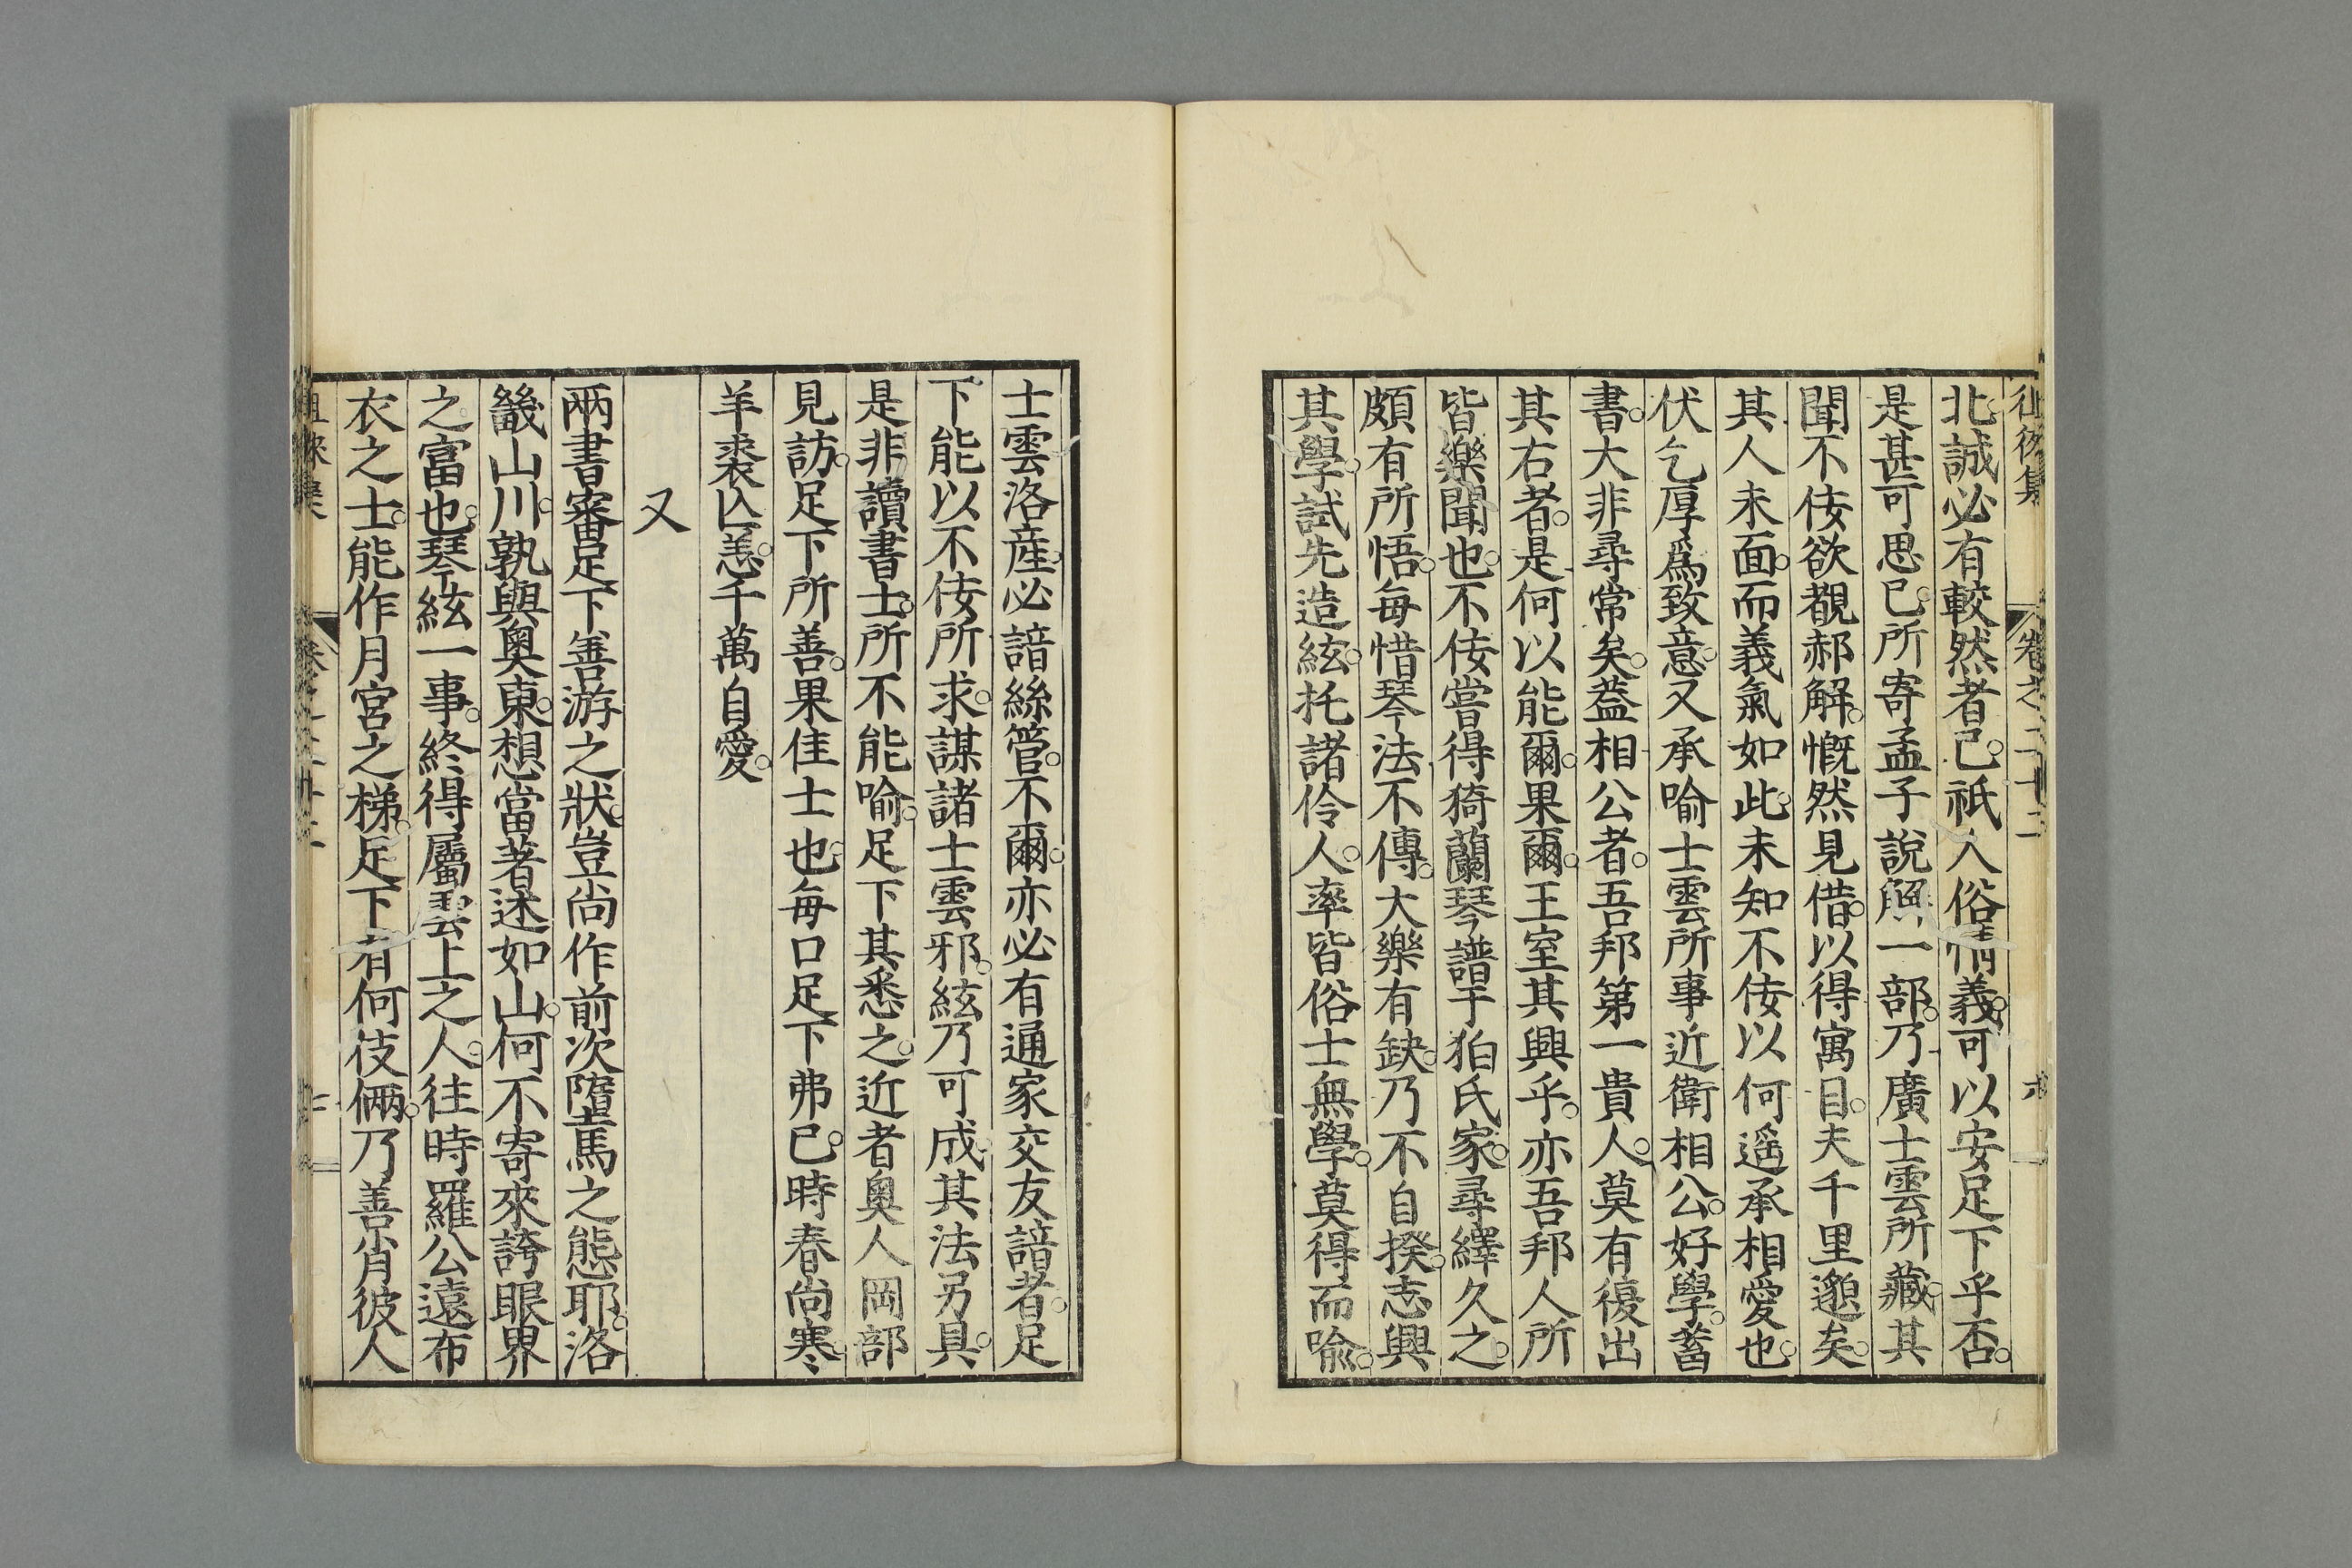 徂徠集 卷之二十二
北誠必有較然者已祇入俗情義可以安足下乎否
是甚可思已所寄孟子說解一部乃廣士雲所藏其
聞不佞欲覩郝解慨然見借以得寓目夫千里邈矣
其人未面而義氣如此未知不佞以何遥承相愛也
伏乞厚爲致意又承喻士雲所事近衛相公好學蓄
書大非尋常矣蓋相公者吾邦第一貴人莫有復出
其右者是何以能爾果爾王室其興乎亦吾邦人所
皆樂聞也不佞嘗得猗蘭琴譜于狛氏家尋繹久之
頗有所悟每惜琴法不傳大樂有缺乃不自揆志興
其學試先造絃托諸伶人率皆俗士無學莫得而喻
士雲洛産必諳絲管不爾亦必有通家交友諳者足
下能以不佞所求謀諸士雲邪絃乃可成其法另具
是非讀書士所不能喻足下其悉之近者奧人岡部
見訪足下所善果佳士也每口足下弗已時春尚寒
羊裘亾恙千萬自愛
又
兩書審足下善游之狀豈尚作前次墮馬之態耶洛
畿山川孰與奧東想當著述如山何不寄來誇眼界
之富也琴絃一事終得屬雲上之人往時羅公遠布
衣之士能作月宮之梯足下有何伎倆乃善肖彼人